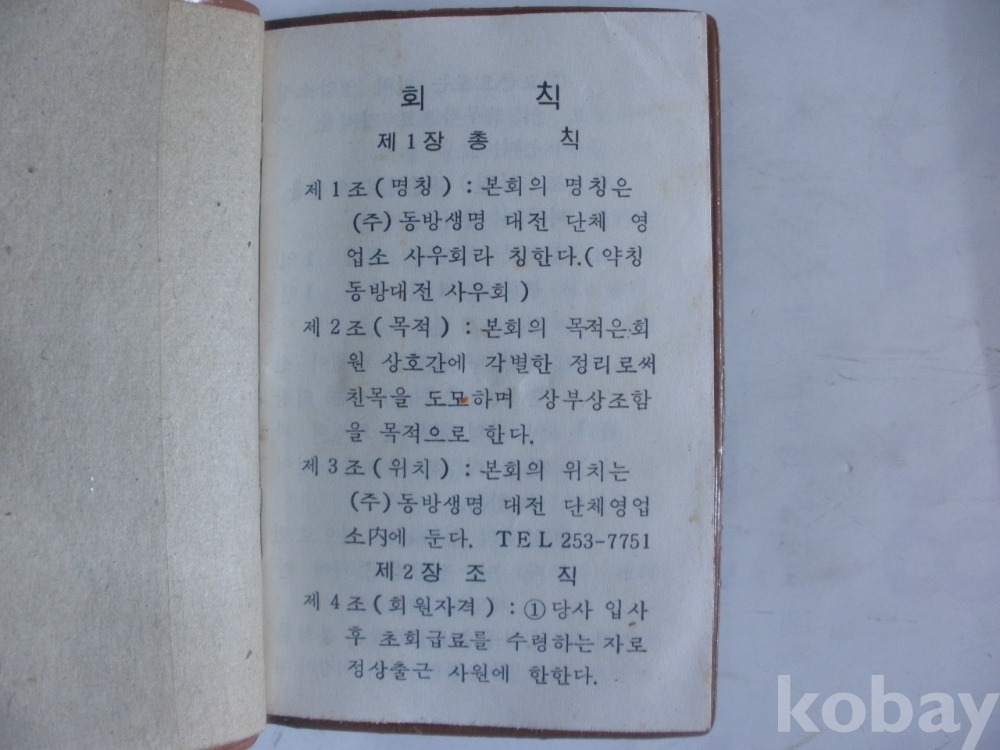 회 칙
제1장 총 칙
제1조(명칭) : 본회의 명칭은
(주)동방생명 대전 단체 영
업소 사우회라 칭한다.(약칭
동방대전 사우회)
제2조(목적) : 본회의 목적은회
원 상호간에 각별한 정리로써
친목을 도모하며 상부상조함
을 목적으로 한다.
제3조(위치) : 본회의 위치는
(주)동방생명 대전 단체영업
소內에 둔다. TEL 253-7751
제2장 조 직
제4조(회원자격) : ①당사 입사
후 초회급료를 수령하는자로
정상출근 사원에 한한다.
kobay